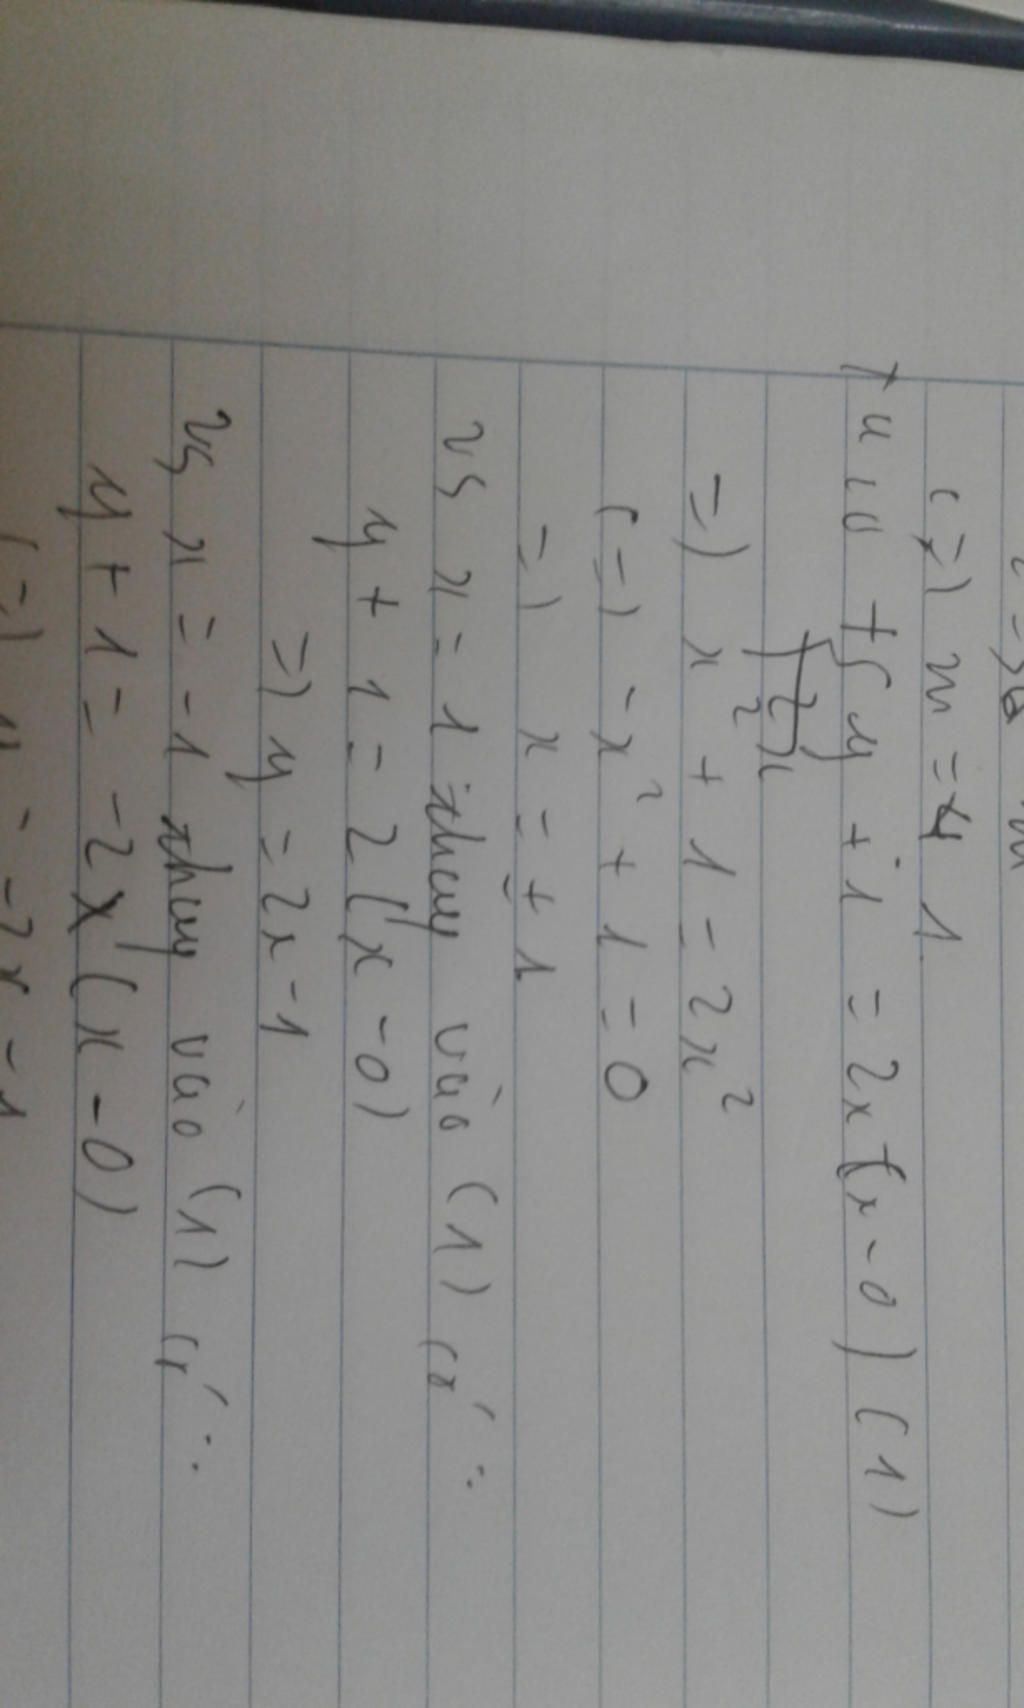 (=) m = 1
y + 1 = 2x (x - 0) (1)
=) x² + 1 = 2x²
(=) -x² + 1 = 0
=) x = ± 1
vs x = 1 thay vào (1) có :
y + 1 = 2 (x - 0)
=) y = 2x - 1
vs x = -1 thay vào (1) có :
y + 1 = -2 (x - 0)
(=) y = -2x - 1